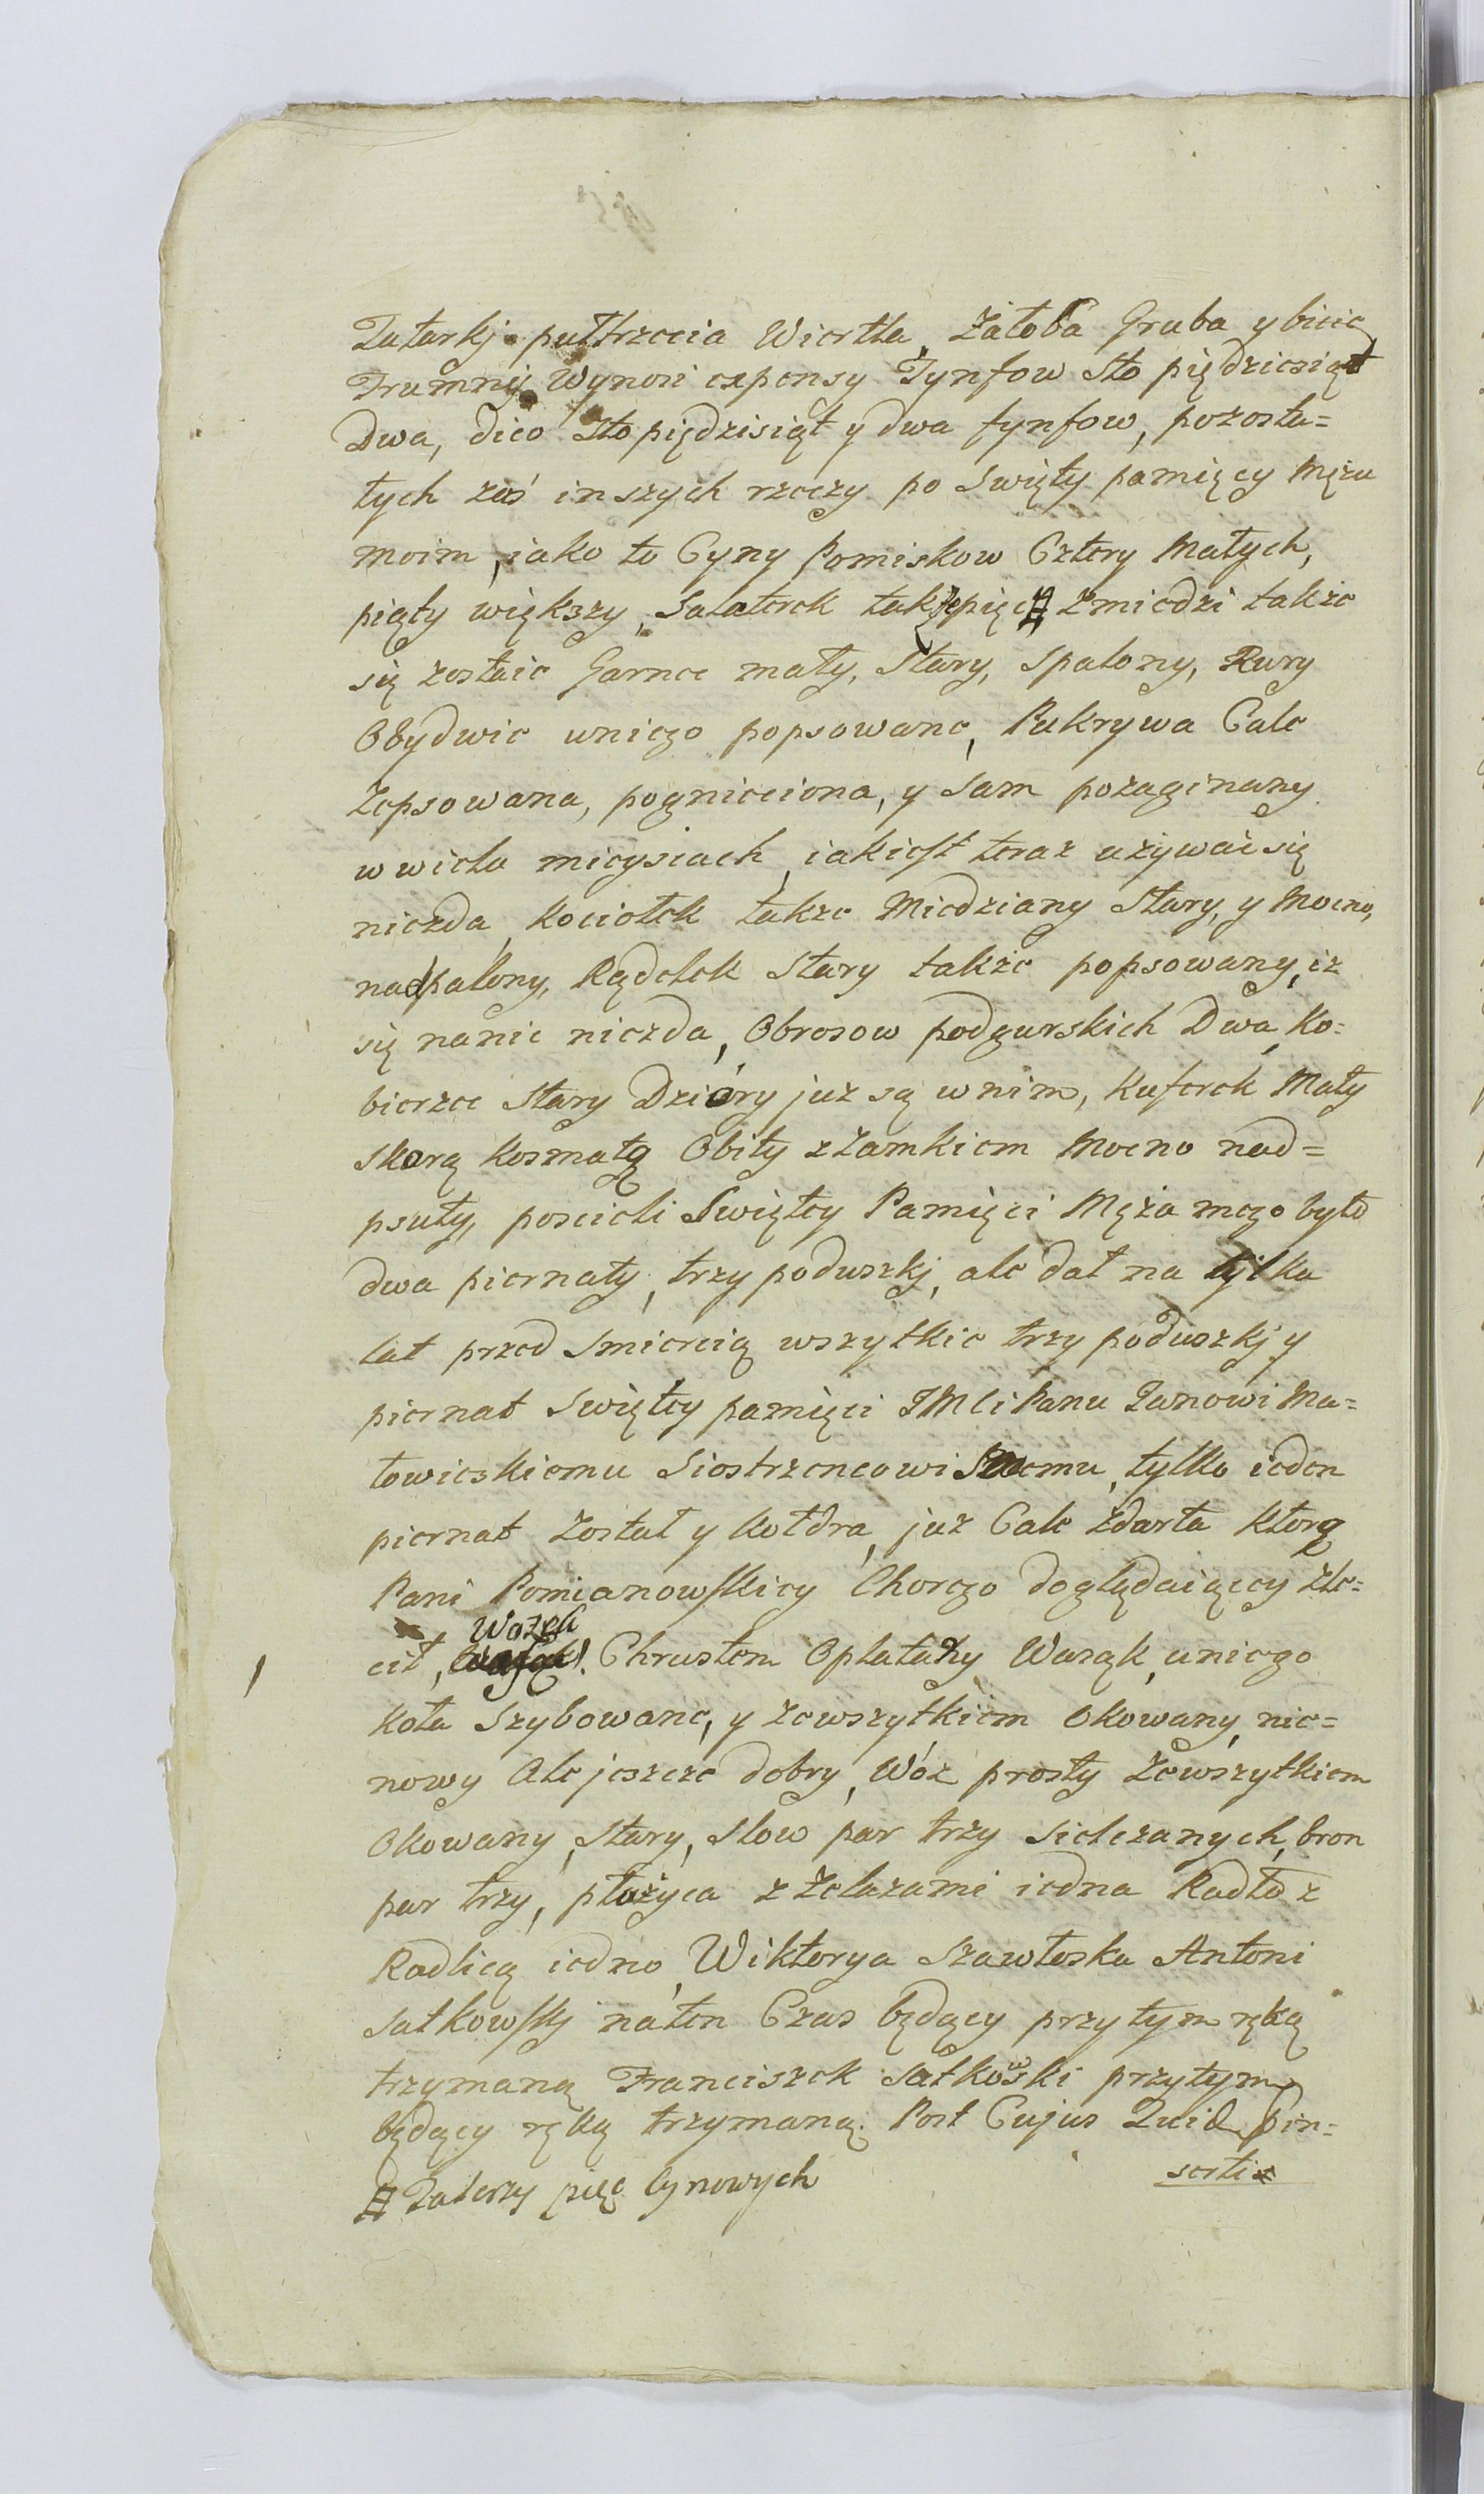 Tatarkj pułtrzecia Wiertla, Załoba Gruba y bicie
Trumnÿ Wynosi expensy Tynfow Sto piędziesiąt
Dwa, dico Sto piędzisiąt y dwa tynfow, pozosta=
łych zaś inszych rzeczy po Swięty pamięcy Mężu
moim, iako to Cyny Pomiskow Cztery Małych,
piąty większy, Salaterek także pięć # Zmiedzi także
się zostaie Garnce mały, Stary, Spalony, Rury
Obydwie uniego popsowane, Pukrywa Cale
Zepsowana, pognieciona, y Sam pozaginany
w wielu mieysiach, iakiest teraz używać się
niezda, Kociołek takze Miedziany Stary, y Mocno,
nadpalony, Rądelek Stary także popsowany, iz
się nanic niezda, Obrosow podgurskich Dwa, Ko=
bierzec Stary Dzióry juz są wnim, Kuferek Mały
skorą Kosmatą Obity zZamkiem Mocno nad=
psuty, poscieli Swiętey Pamięci Męża mego było
dwa piernaty, trzy poduszkj, ale dał na kilka
lat przed Smiercią wszytkie trzy poduszkj y
piernat Swiętey pamięci JMCi Panu Janowi Ma=
łowieskiemu Siostrzencowi Swemu, tylko ieden
piernat został y Kołdra, juz Cale zdarta Ktorą
Pani Pomianowskiey Chorego doglądaiącey zle=
Wozek
cił, Chrustem Oplatany Wasąk, uniego
Koła Szybowane, y zewszytkiem Okowany, nie=
nowy Ale jeszcze dobry, Wóz prosty Zewszytkiem
Okowany, Stary, Slow par trzy Sielczanych, bron
par trzy, płożyca z Zelazami iedna Radło z
Radlicą iedno, Wiktorya Szawłoska Antoni
Satkowskj náten Czas będący przytym ręką
trzymaną Franciszek Satkowski przytym
będący ręką trzymaną. Post Cujus Quid in=
serti
# Talerzy pięć Cynowych